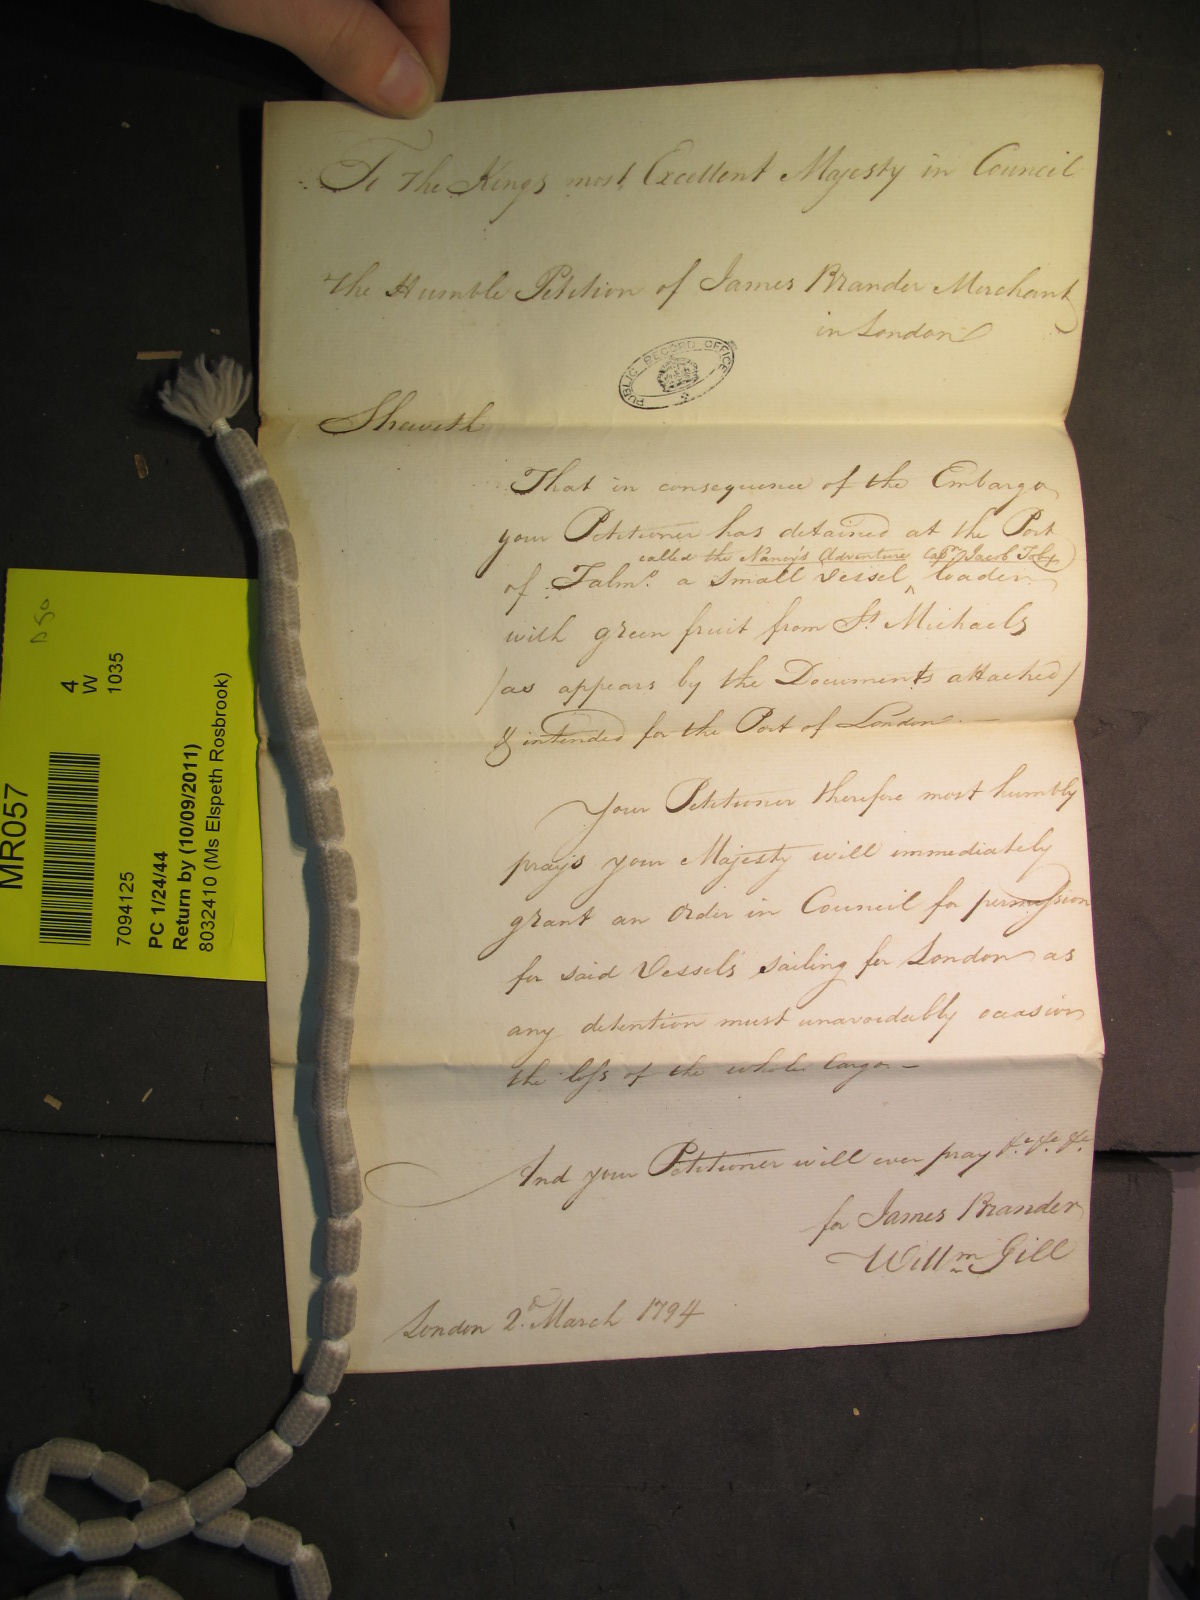 To The Kings most Excellent Majesty in Council
The Humble Petition of James Brander Merchant
in London
PUBLIC RECORD OFFICE
Sheweth
That in consequence of the Embargo
your Petitioner has detained at the Port
called the Nancy's Adventure Capt. Jacob Toby
of Falmo. a Small Vessel ^ loaden
with green fruit from St. Michaels
/as appears by the Documents attached/
& intended for the Port of London. —
Your Petitioner therefore most humbly
prays your Majesty will immediately
grant an Order in Council for permission
for said Vessels sailing for London as
any detention must unavoidably occasion
the loss of the whole Cargo. —
And your Petitioner will ever pray &c. &c. &c.
for James Brander
Willm Gill
London 2d. March 1794
4
W
1035
MR057
7094125
PC 1/24/44
Return by (10/09/2011)
8032410 (Ms Elspeth Rosbrook)